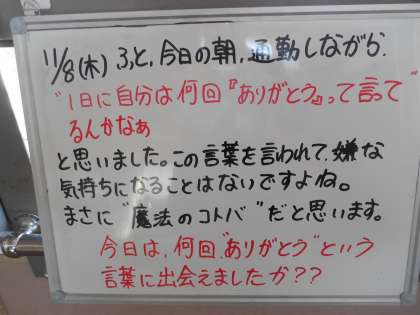 11/8(木) ふと、今日の朝、通勤しながら、
"1日に自分は何回『ありがとう』って言って
るんかなぁ
と思いました。この言葉を言われて、嫌な
気持ちになることはないですよね。
まさに"魔法のコトバ"だと思います。
今日は、何回"ありがとう"という
言葉に出会えましたか??